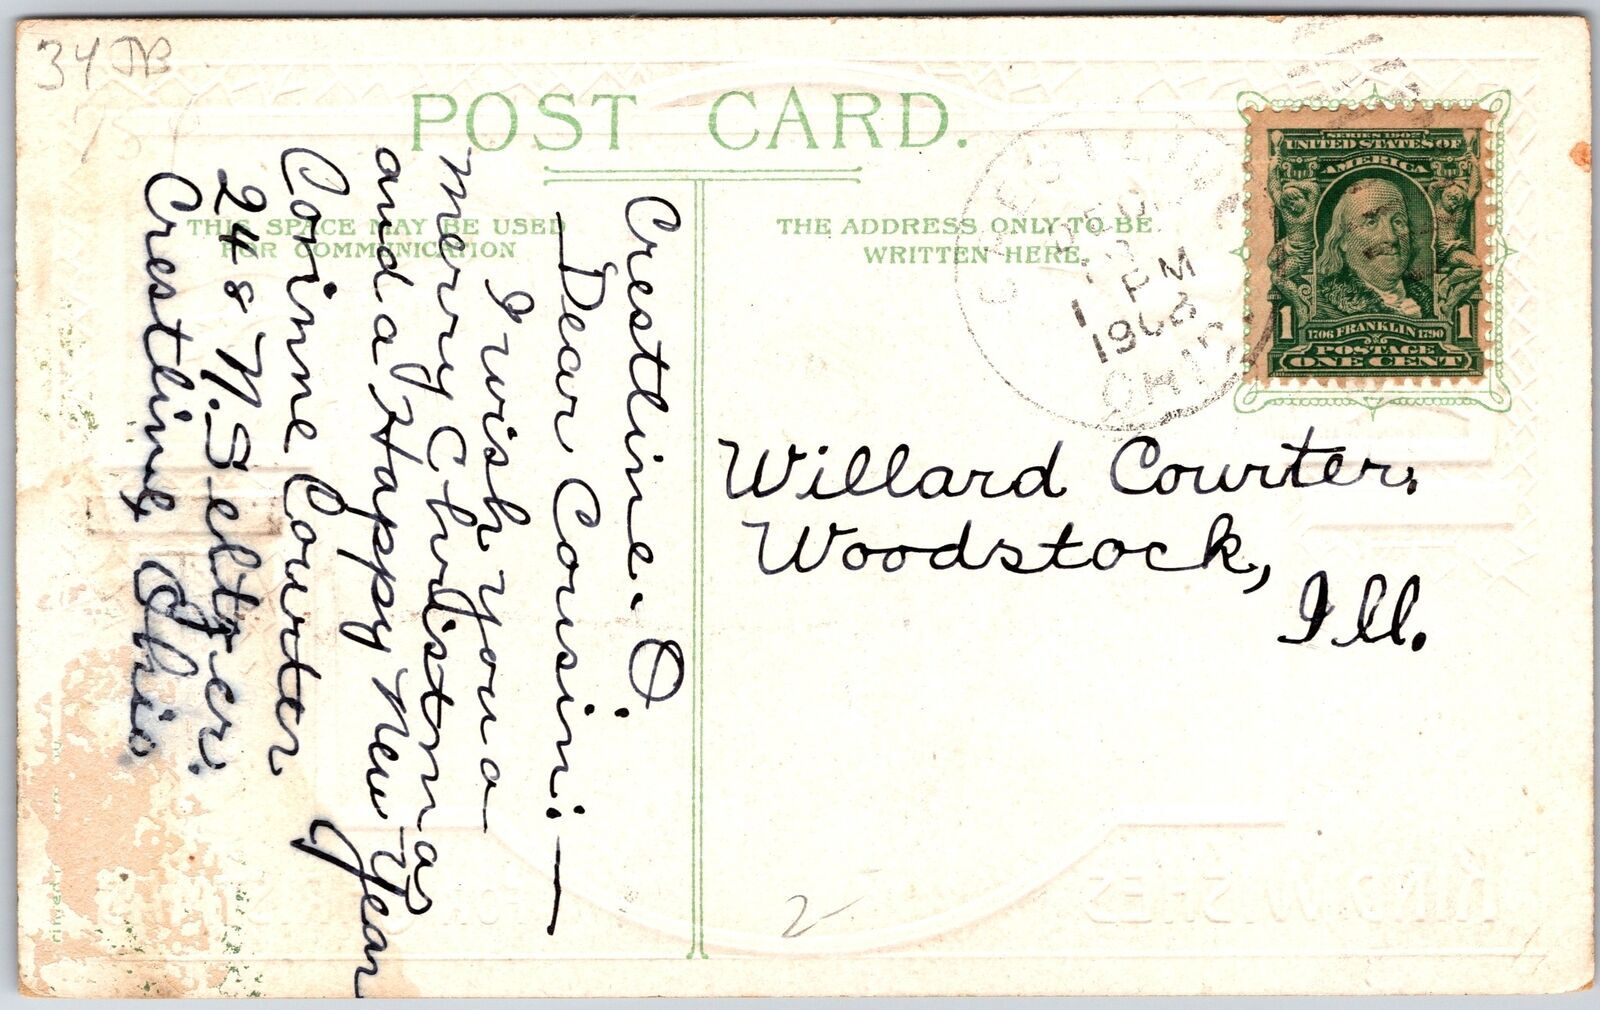 34 JB
75
POST CARD.
THIS SPACE MAY BE USED
FOR COMMUNICATION
THE ADDRESS ONLY TO BE
WRITTEN HERE.
CRESTLINE
DEC
1 PM
1908
OHIO
SERIES 1902
UNITED STATES OF
AMERICA
1 1706 FRANKLIN 1790 1
POSTAGE
ONE CENT
Crestline. O.
Dear Cousin:—
I wish you a
merry Christmas
and a Happy New Year
Corinne Courter
248 N. Seltzer.
Crestline, Ohio
Willard Courter,
Woodstock,
Ill.
2
KIND WISHES